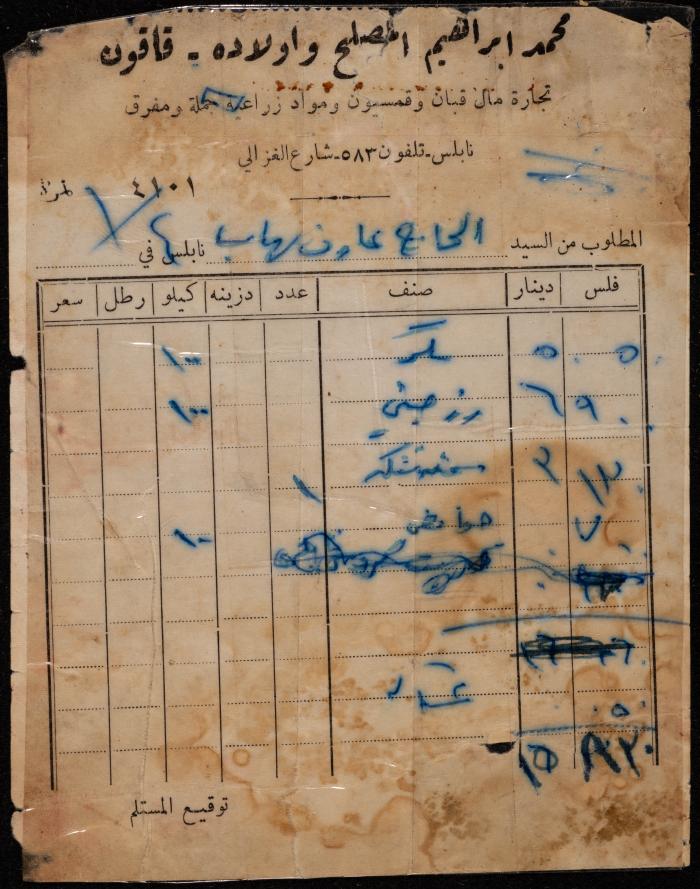 محمد ابراهيم المصلح واولاده - قاقون
تجارة مال قبان وقمسيون ومواد زراعية جملة ومفرق
نابلس - تلفون ٥٨٣ - شارع الغزالي
نمرة ٤١٠١
المطلوب من السيد الحاج نابلس في
فلس دينار صنف عدد دزينه كيلو رطل سعر
٠٥٠ ٥ سكر ١٠٠
٩٠٠ ٦ رز ١٠٠
١٢٠ ٣ ١
٧٠٠ حامض ١٠
٠٥٠
٨٢٠ ١٥
توقيع المستلم